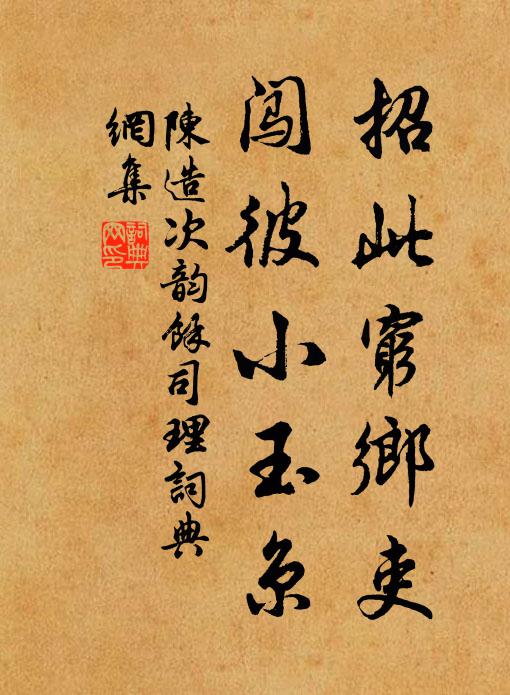 招此窮鄉吏
闖彼小玉京
陳造次韵餘司理詞典
網集
詞典
网印